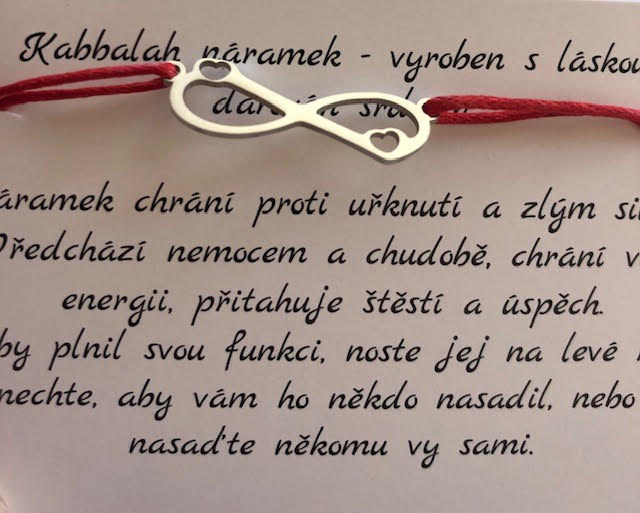 Kabbalah náramek - vyroben s láskou
náramek chrání proti uřknutí a zlým
Předchází nemocem a chudobě, chrání
energii, přitahuje štěstí a úspěch.
by plnil svou funkci, noste jej na levé
nechte, aby vám ho někdo nasadil, nebo
nasaďte někomu vy sami.